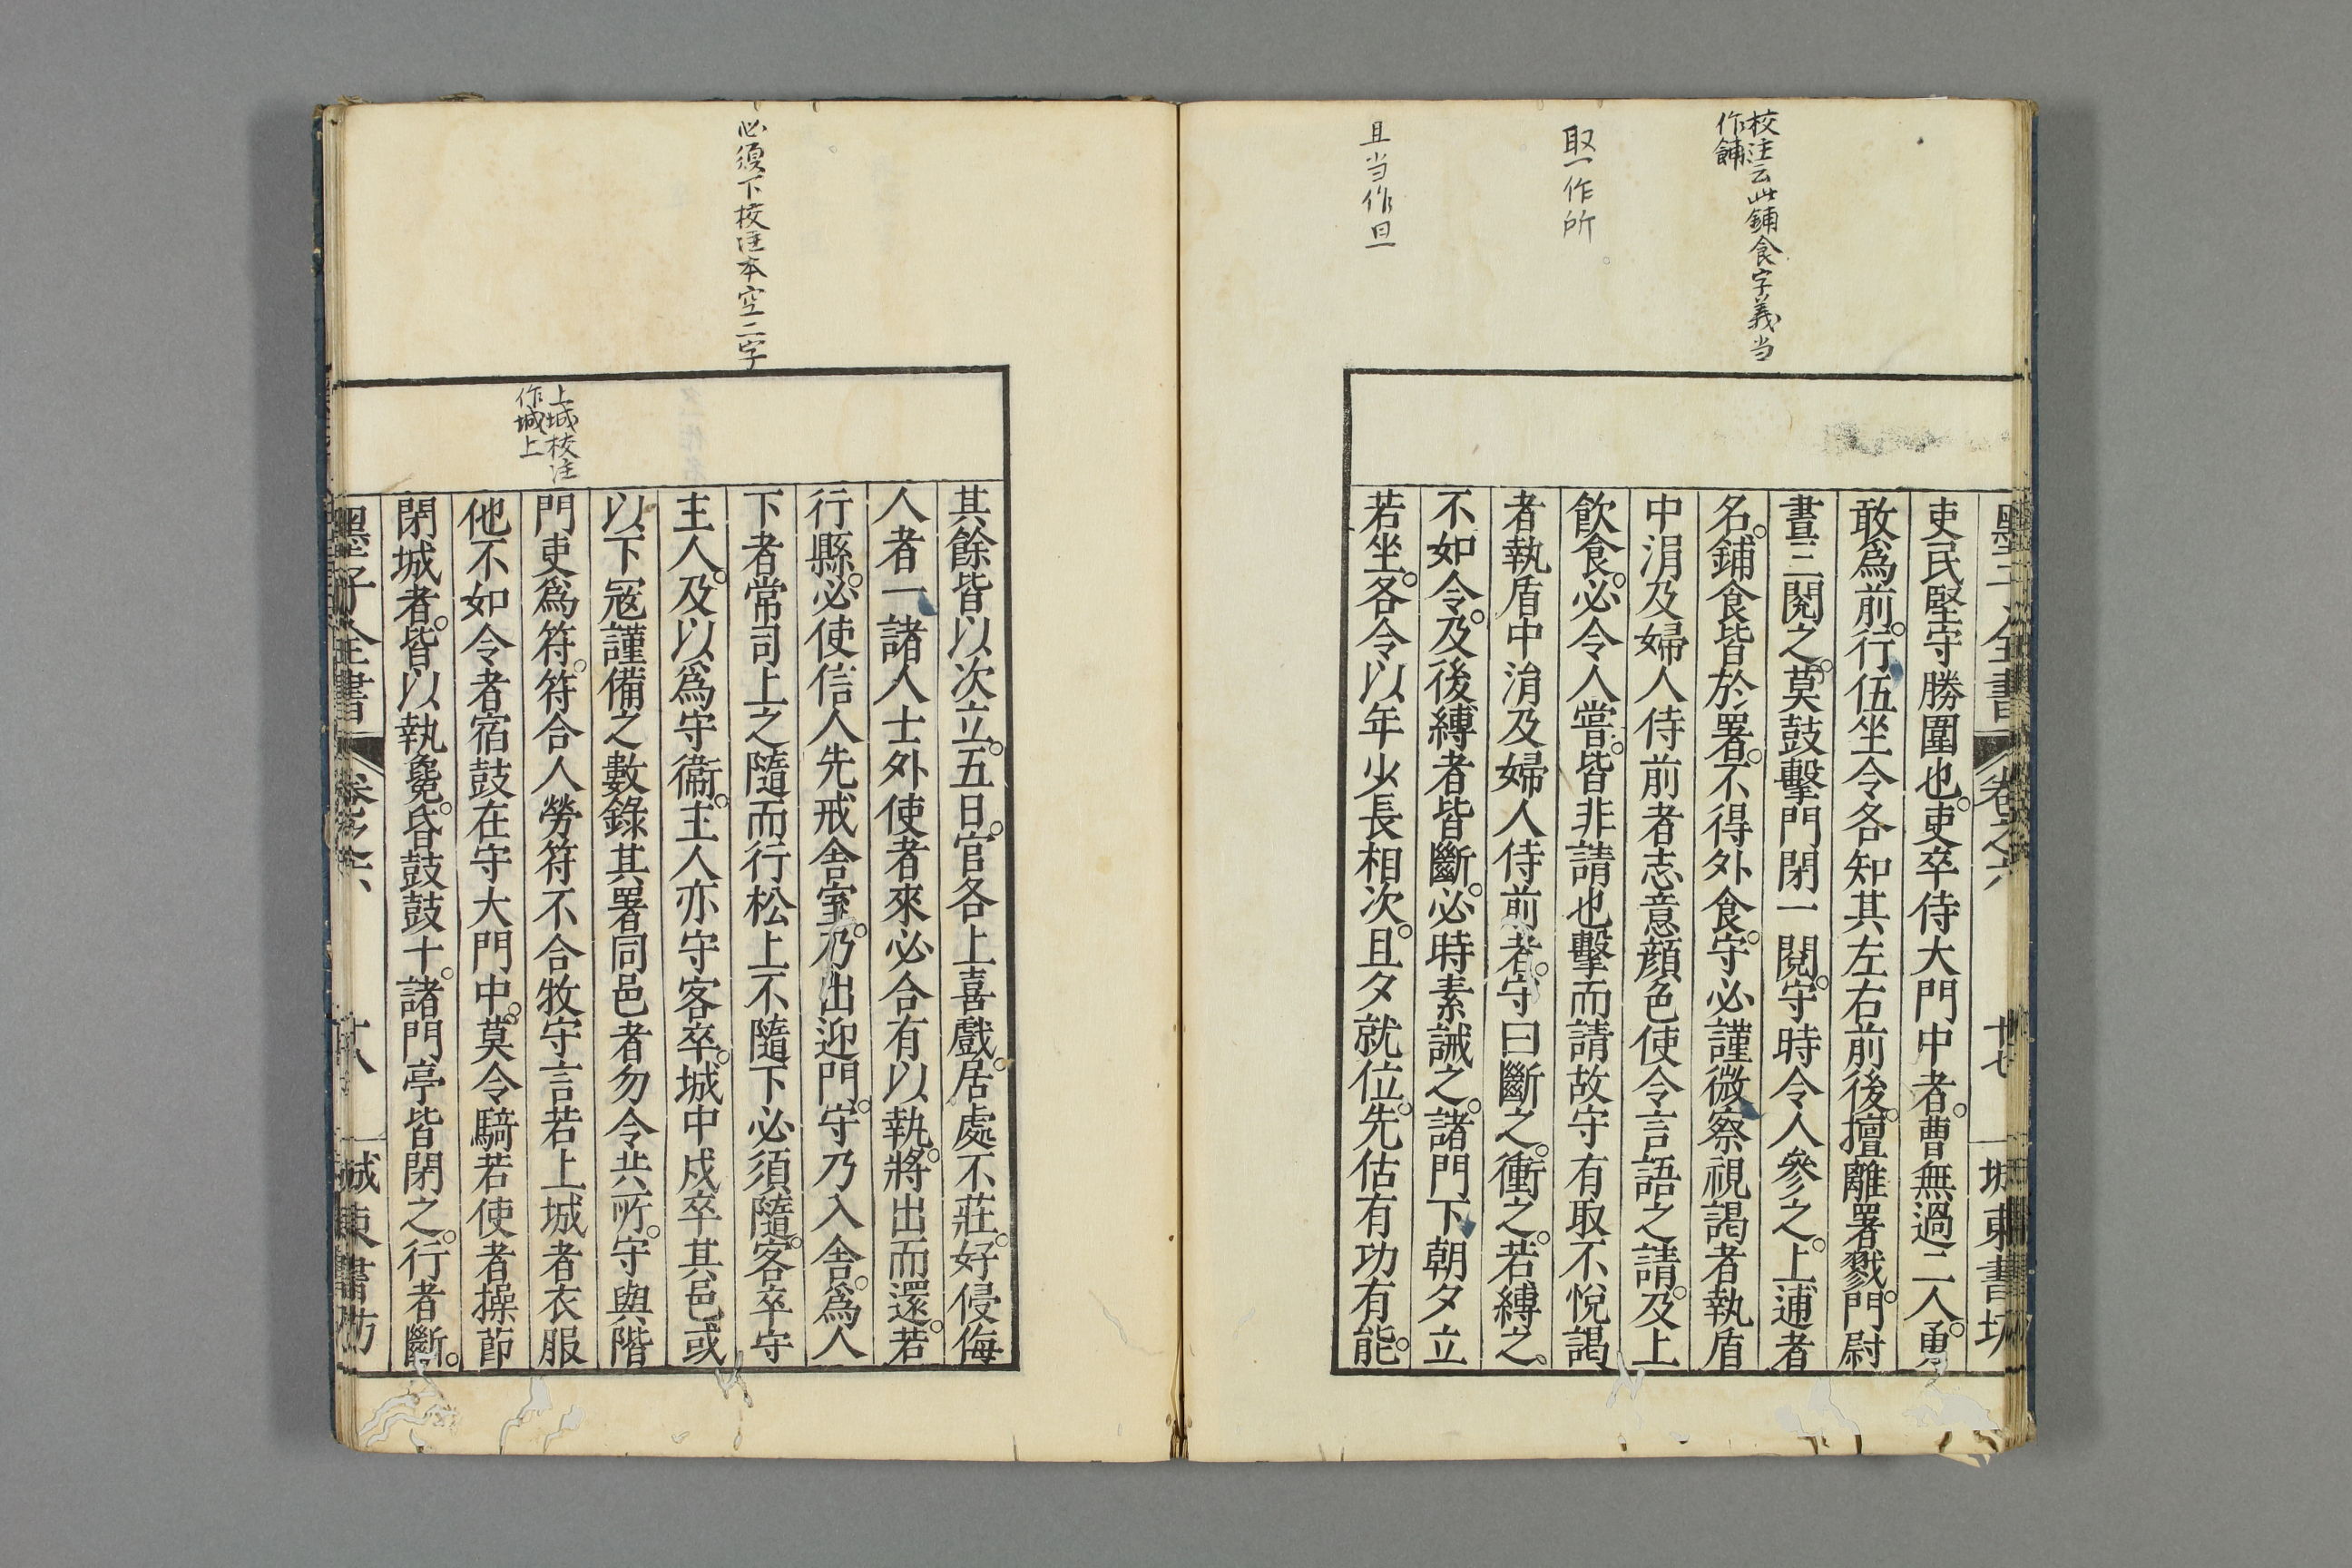 校注云此鋪食字義当
作餔
取一作所
且当作旦
吏民堅守勝圍也吏卒侍大門中者曹無過二人勇
敢爲前行伍坐令各知其左右前後擅離署戮門尉
晝三閱之莫鼓擊門閉一閱守時令人參之上逋者
名鋪食皆於署不得外食守必謹微察視謁者執盾
中涓及婦人侍前者志意顔色使令言語之請及上
飲食必令人嘗皆非請也擊而請故守有取不悅謁
者執盾中涓及婦人侍前者守曰斷之衝之若縛之
不如令及後縛者皆斷必時素誡之諸門下朝夕立
若坐各令以年少長相次且夕就位先估有功有能
必須下校注本空二字
上城校注
作城上
其餘皆以次立五日官各上喜戲居處不莊好侵侮
人者一諸人士外使者來必合有以執將出而還若
行縣必使信人先戒舍室乃出迎門守乃入舍爲人
下者常司上之隨而行松上不隨下必須隨客卒守
主人及以爲守衞主人亦守客卒城中戍卒其邑或
以下冦謹備之數錄其署同邑者勿令共所守與階
門吏爲符符合人勞符不合牧守言若上城者衣服
他不如令者宿鼓在守大門中莫令騎若使者操節
閉城者皆以執毚昏鼓鼓十諸門亭皆閉之行者斷
墨子全書 卷之六 十八 城東書坊